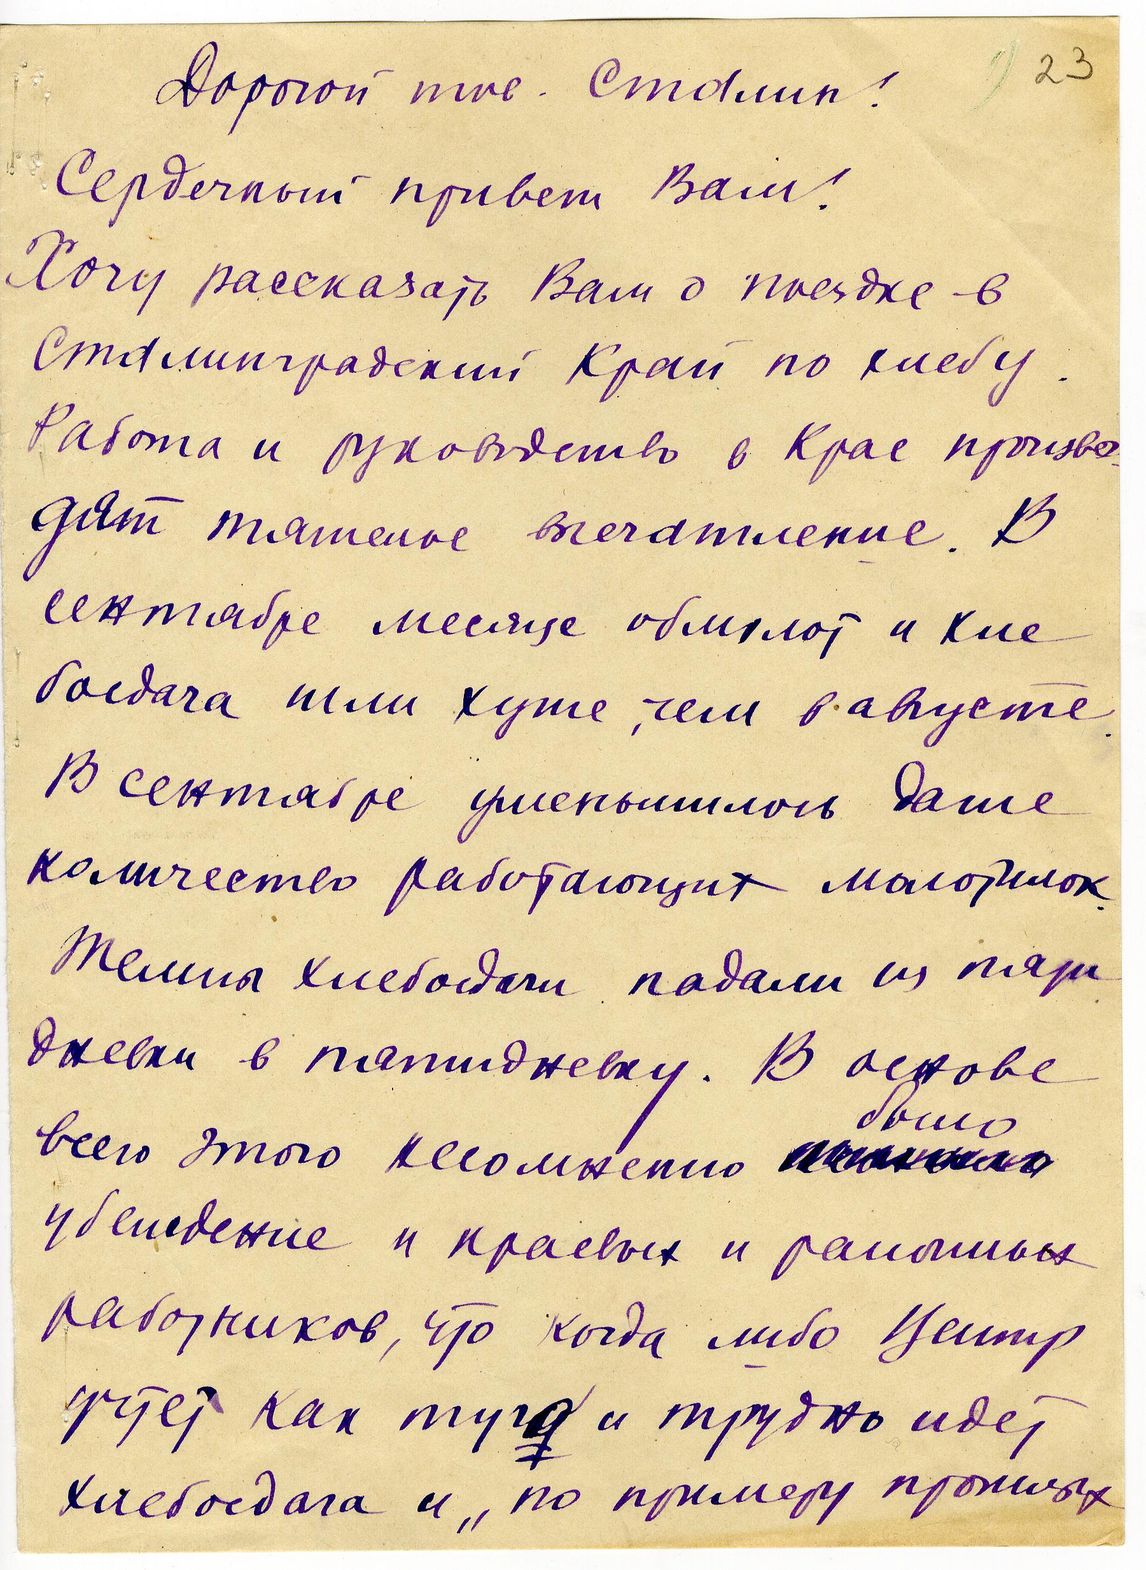 23
Дорогой тов. Сталин!
Сердечный привет Вам!
Хочу рассказать Вам о поездке в
Сталинградский Край по хлебу.
Работа и руководство в Крае произво-
дят тяжелое впечатление. В
сентябре месяце обмолот и хле
босдача шли хуже, чем в августе.
В сентябре уменьшилось даже
количество работающих молотилок.
Темпы хлебосдачи падали из пяти
дневки в пятидневку. В основе
было
всего этого несомненно
убеждение и краевых и районных
работников, что когда либо Центр
учтет как туго и трудно идет
хлебосдача и „по примеру прошлых